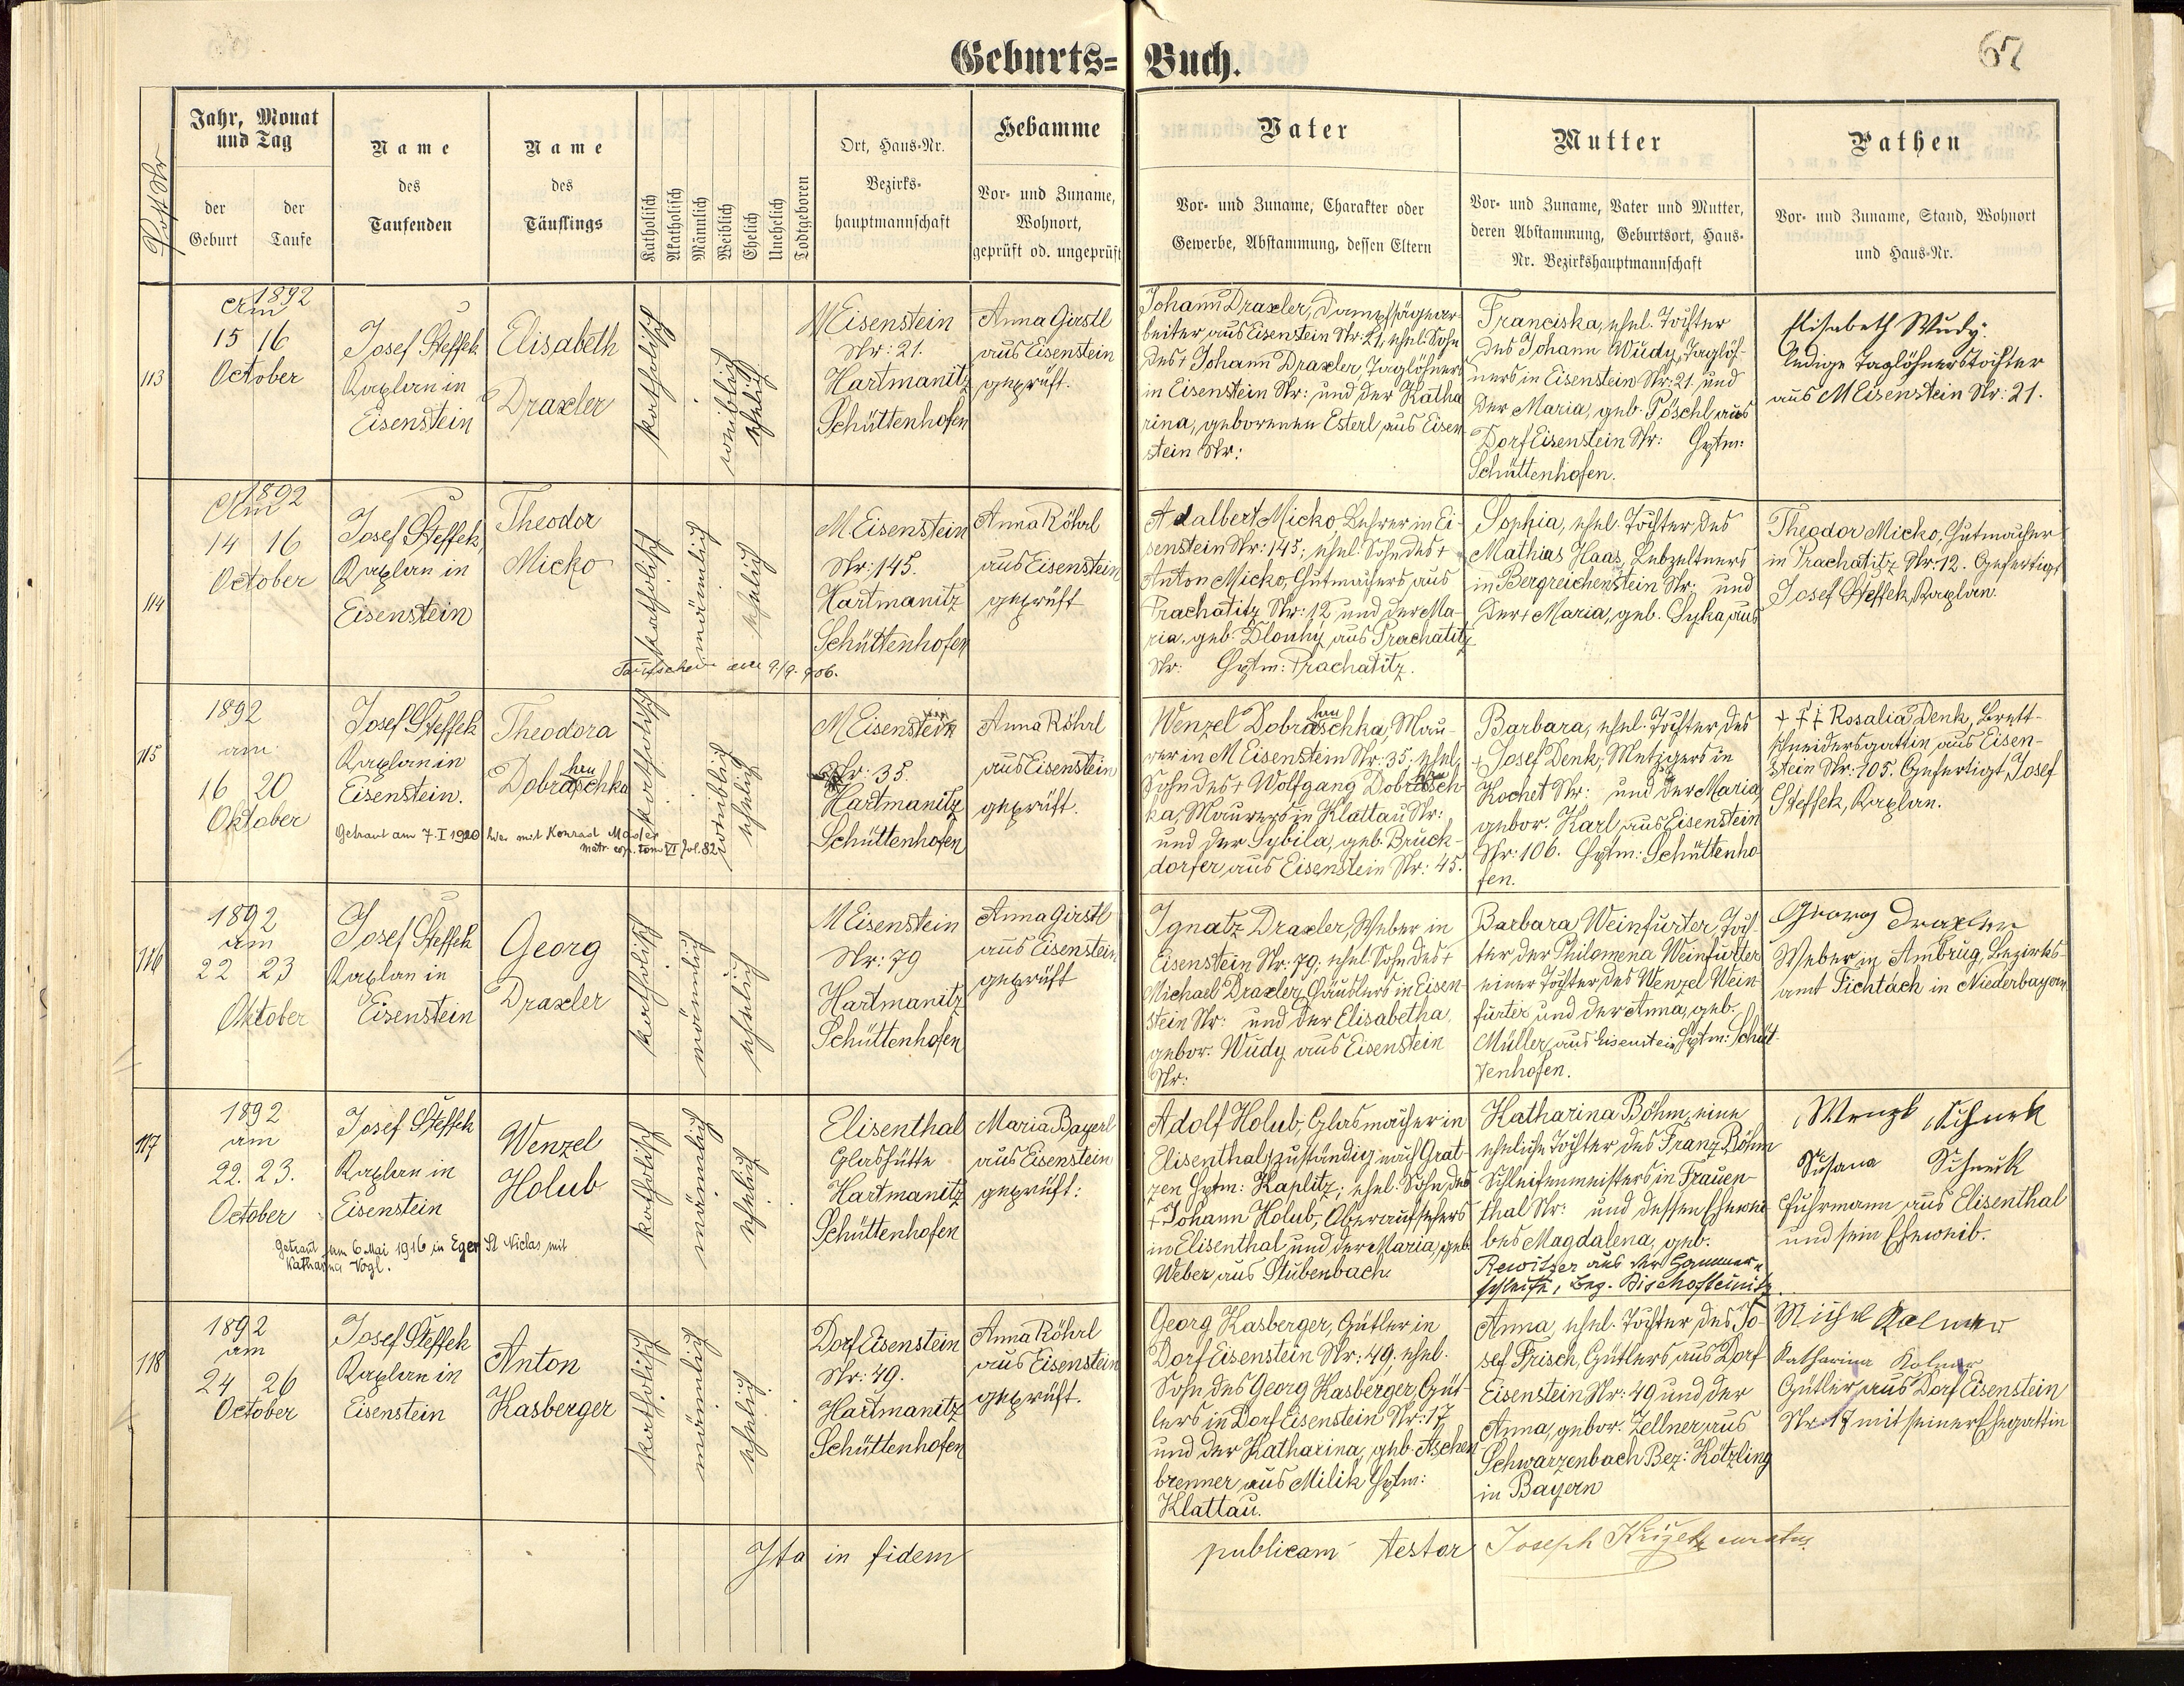 Geburts= Buch.
67
Post Nr
Jahr, Monat und Tag
der Geburt
der Taufe
Name des Taufenden
Name des Täuflings
Katholisch
Akatholisch
Männlich
Weiblich
Ehelich
Unehelich
Todtgeboren
Ort, Haus-Nr. Bezirks-hauptmannschaft
Hebamme
Vor- und Zuname, Wohnort, geprüft od. ungeprüft
Vater
Vor- und Zuname, Charakter oder
Gewerbe, Abstammung, dessen Eltern
Mutter
Vor- und Zuname, Vater und Mutter,
deren Abstammung, Geburtsort, Haus-
Nr. Bezirkshauptmannschaft
Pathen
Vor- und Zuname, Stand, Wohnort
und Haus-Nr.
113
1892
Am
15 16
October
Josef Steffek
Kaplan in
Eisenstein
Elisabeth
Draxler
katholisch
weiblich
ehelich
M Eisenstein
Nr: 21.
Hartmanitz
Schüttenhofen
Anna Girstl
aus Eisenstein
geprüft.
Johann Draxler, Dampfsägear-
beiter aus Eisenstein Nr. 21, ehel. Sohn
des † Johann Draxler, Taglöhners
in Eisenstein Nr: und der Katha
rina, geborenen Esterl aus Eisen-
stein Nr:
Franciska, ehel. Tochter
des Johann Wudy, Taglöh-
ners in Eisenstein Nr: 21. und
der Maria, geb. Pöschl aus
Dorf Eisenstein Nr: Hptm:
Schüttenhofen.
Elisabeth Wudy:
ledige Taglöhnerstochter
aus M Eisenstein Nr: 21.
114
1892
Am
14 16
October
Josef Steffek,
Kaplan in
Eisenstein
Theodor
Micko
katholisch
männlich
ehelich
Taufschein am 9/9. 906.
M Eisenstein
Nr: 145.
Hartmanitz
Schüttenhofen
Anna Röhrl
aus Eisenstein
geprüft
Adalbert Micko Lehrer in Ei-
senstein Nr: 145; ehel. Sohn des †
Anton Micko, Hutmachers aus
Prachatitz Nr: 12 und der Ma-
ria, geb. Dlouhy aus Prachatitz
Nr: Hptm: Prachatitz.
Sophia, ehel. Tochter des
Mathias Haas, Lebzeltners
in Bergreichenstein Nr: und
der † Maria, geb. Syka, aus
Theodor Micko, Hutmacher
in Prachatitz Nr: 12. Gefertigt
Josef Steffek, Kaplan.
115
1892
am
16 20
Oktober
Josef Steffek
Kaplan in
Eisenstein.
Theodora
Dobraschka
hen
Getraut am 7. I 1920 hier mit Konrad
matr. cop. tom VI fol. 82
katholisch
weiblich
ehelich
M Eisenstein
Nr: 35.
Hartmanitz
Schüttenhofen
Anna Röhrl
aus Eisenstein
geprüft.
Wenzel Dobraschka, Mau-
rer in M Eisenstein Nr: 35. ehel.
Sohn des † Wolfgang Dobrasch-
ka, Maurers in Klattau Nr:
und der Sybila, geb. Bruck-
dorfer aus Eisenstein Nr: 45.
Barbara, ehel. Tochter des
† Josef Denk, Metzgers in
Kochet Nr: und der Maria,
gebor. Karl, aus Eisenstein
Nr: 106. Hptm: Schüttenho-
fen.
† † † Rosalia Denk, Brett-
schneidersgattin aus Eisen-
stein Nr: 105. Gefertigt Josef
Steffek, Kaplan.
116
1892
am
22 23
Oktober
Josef Steffek
Kaplan in
Eisenstein
Georg
Draxler
katholisch
männlich
ehelich
M Eisenstein
Nr: 79
Hartmanitz
Schüttenhofen
Anna Girstl
aus Eisenstein
geprüft
Ignatz Draxler, Weber in
Eisenstein Nr: 79. ehel. Sohn des †
Michael Draxler, Häuslers in Eisen-
stein Nr: und der Elisabetha,
gebor. Wudy aus Eisenstein
Nr:
Barbara Weinfurter, Toch-
ter der Philomena Weinfurter
einer Tochter des Wenzel Wein
furter und der Anna, geb.
Müller, aus Eisenstein Hptm: Schüt-
tenhofen.
Georg Draxler
Weber in Ambrug, Bezirks-
amt Fichtach in Niederbayern
117
1892
am
22. 23.
October
Josef Steffek
Kaplan in
Eisenstein
Wenzel
Holub
Getraut am 6 Mai 1916 in Eger St Niclas mit
Katharina Vogl.
katholisch
männlich
ehelich
Elisenthal
Glashütte
Hartmanitz
Schüttenhofen
Maria Bayerl
aus Eisenstein
geprüft:
Adolf Holub, Glasmacher in
Elisenthal, zuständig nach Grat-
zen Hptm: Kaplitz; ehel. Sohn des
† Johann Holub, Oberaufsehers
in Elisenthal und der Maria, geb.
Weber aus Stubenbach.
Katharina Böhm, eine
eheliche Tochter des Franz Böhm
Schleifenmeisters in Frauen-
thal Nr: und dessen Ehewei
bes Magdalena, geb.
Rewitzer aus der Hammer-
schleife, Bez. Bischofteinitz.
Wenzl Schneck
Susana Schneck
Fuhrmann aus Elisenthal
und sein Eheweib.
118
1892
am
24 26
October
Josef Steffek
Kaplan in
Eisenstein
Anton
Kasberger
katholisch
männlich
ehelich
Dorf Eisenstein
Nr: 49.
Hartmanitz
Schüttenhofen
Anna Röhrl
aus Eisenstein
geprüft.
Georg Kasberger, Gütler in
Dorf Eisenstein Nr: 49. ehel.
Sohn des Georg Kasberger, Güt-
lers in Dorf Eisenstein Nr: 17
und der Katharina, geb. Aschen
brenner aus Milik Hptm:
Klattau.
Anna, ehel. Tochter des Jo-
sef Frisch, Gütlers aus Dorf
Eisenstein Nr: 49 und der
Anna, gebor. Zellner, aus
Schwarzenbach Bez: Kötzling
in Bayern
Katharina
Gütler aus Dorf Eisenstein
Nr: 17 mit seiner Ehegattin
Ita in fidem publicam testor Joseph Křížek curatus